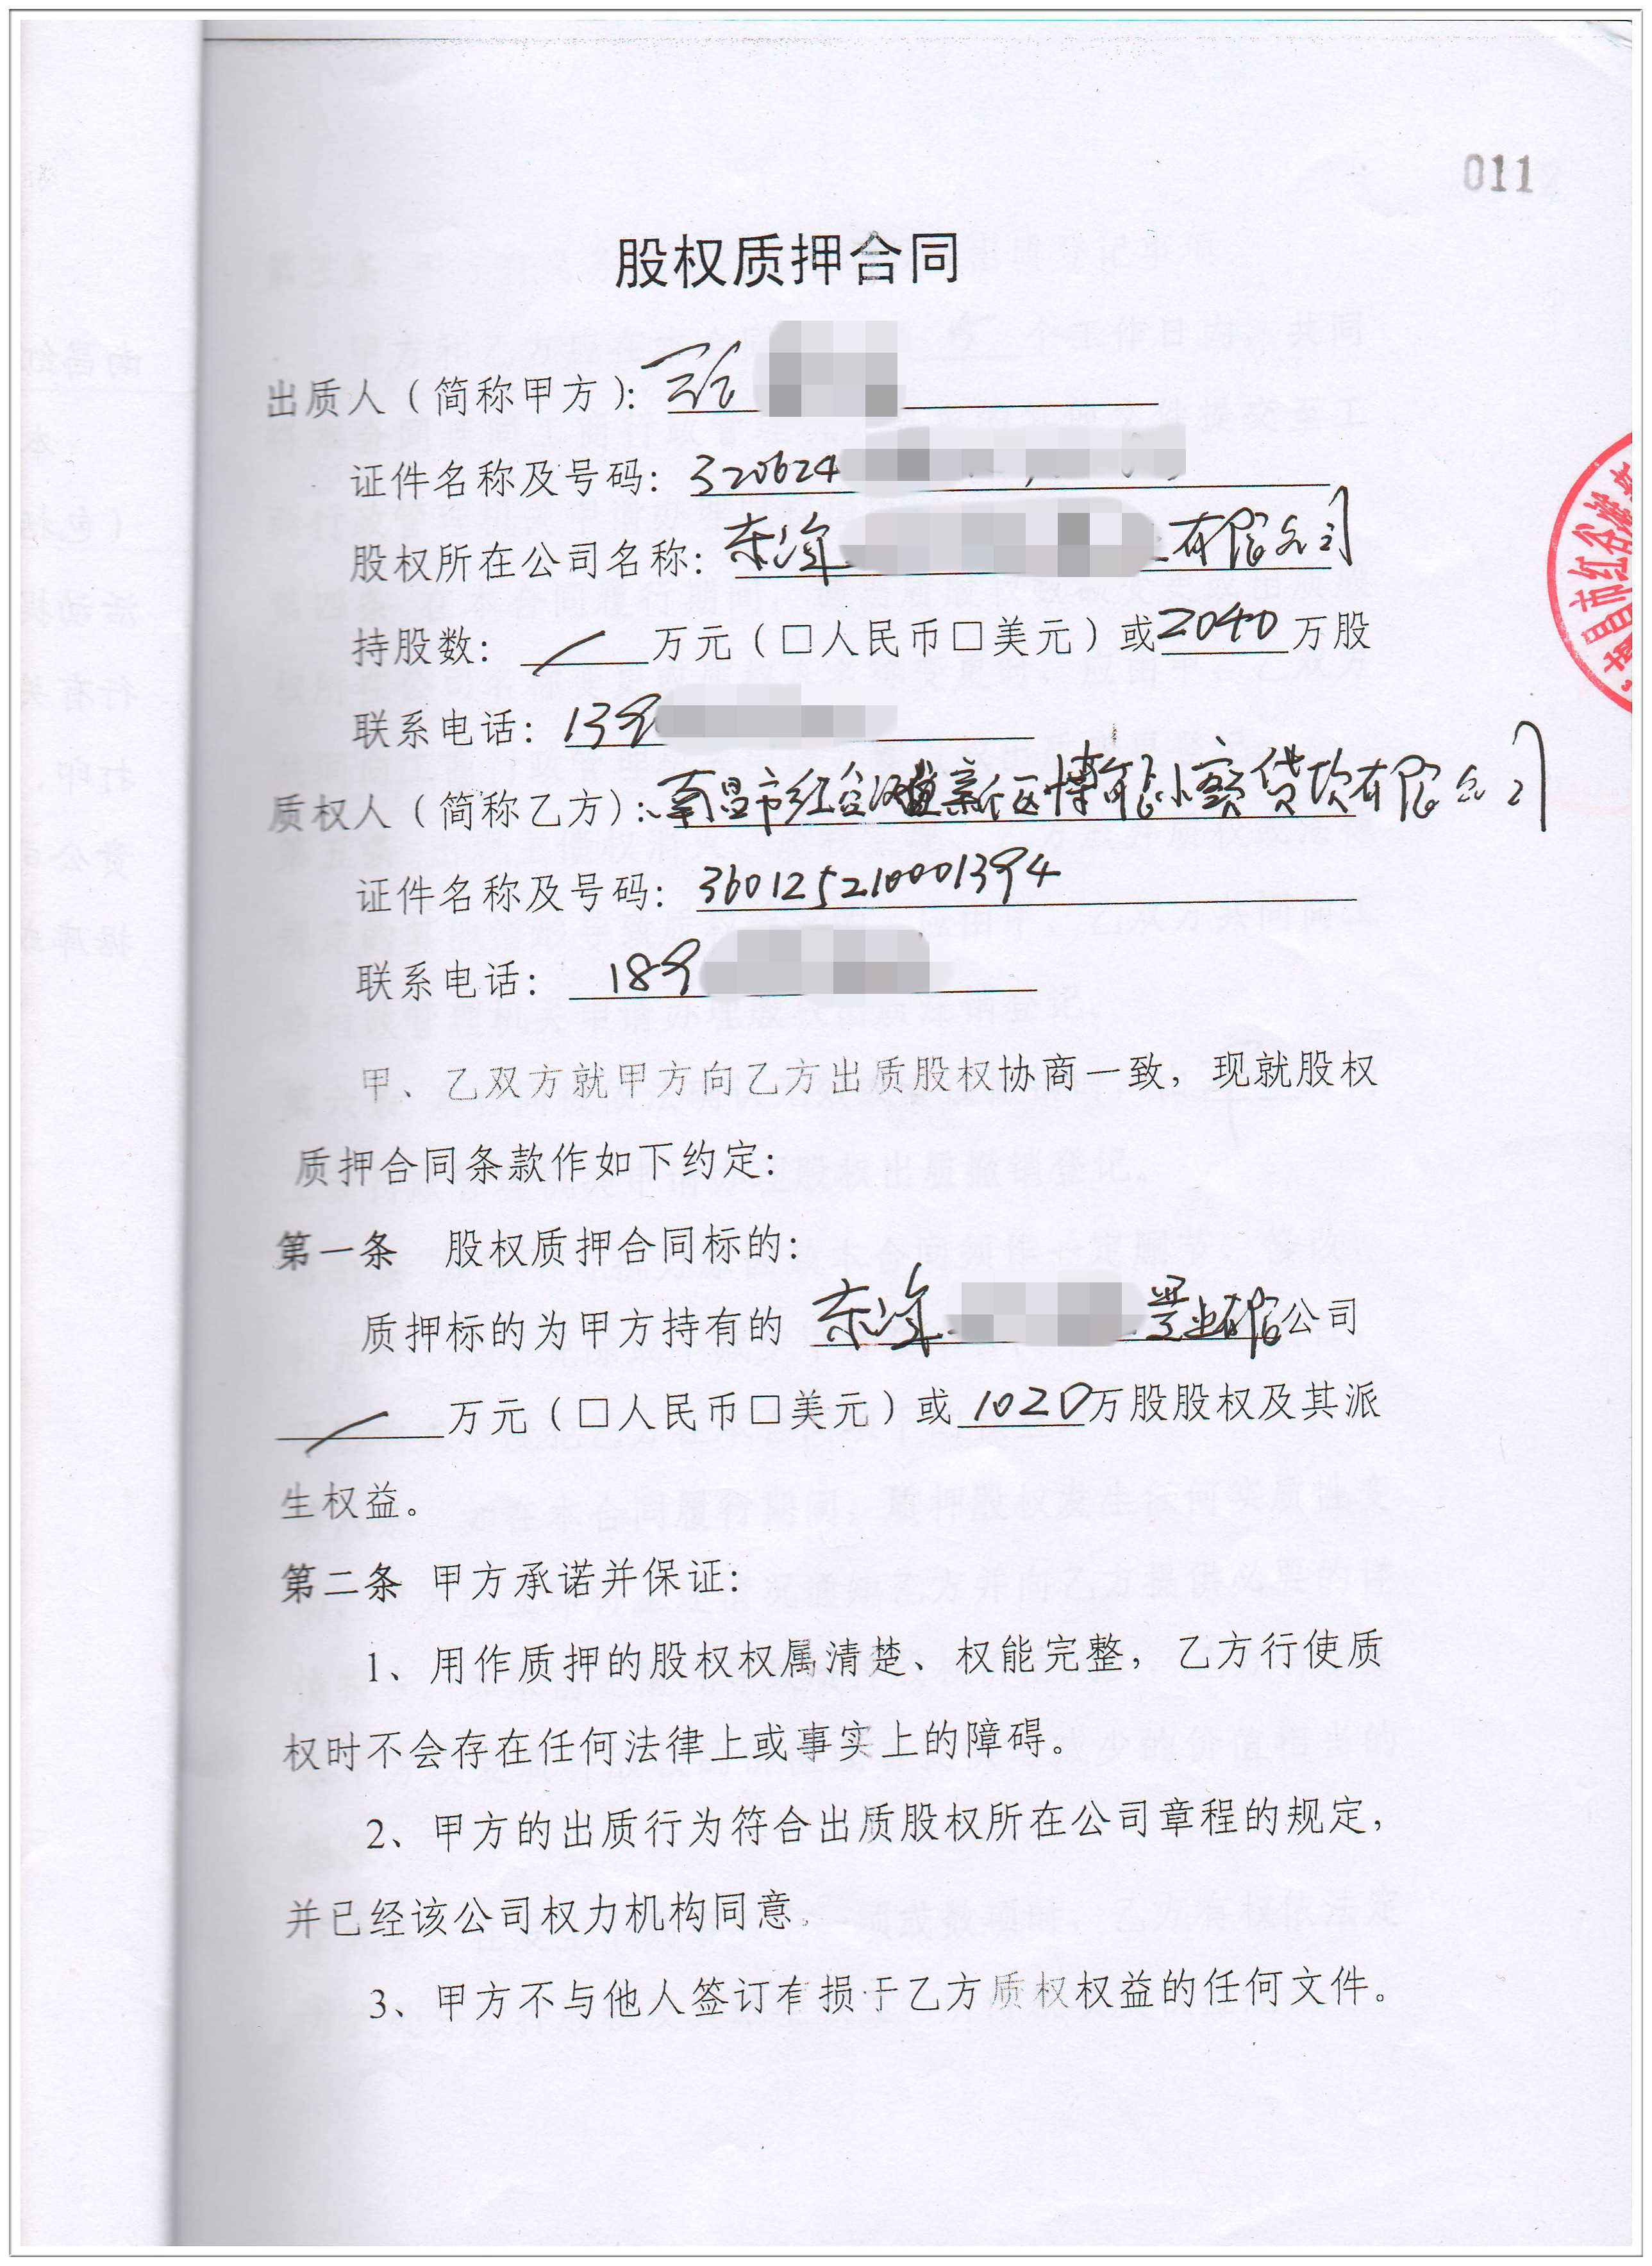 011
股权质押合同
出质人（简称甲方）:
证件名称及号码: 320624
股权所在公司名称: 东 有限公司
持股数: 万元（□人民币□美元）或2040万股
联系电话: 139
质权人（简称乙方）: 南昌市红谷滩新区博能小额贷款有限公司
证件名称及号码: 360125210001394
联系电话: 189
甲、乙双方就甲方向乙方出质股权协商一致，现就股权
质押合同条款作如下约定:
第一条 股权质押合同标的:
质押标的为甲方持有的 东 置业有限公司
万元（□人民币□美元）或1020万股股权及其派
生权益。
第二条 甲方承诺并保证:
1、用作质押的股权权属清楚、权能完整，乙方行使质
权时不会存在任何法律上或事实上的障碍。
2、甲方的出质行为符合出质股权所在公司章程的规定，
并已经该公司权力机构同意。
3、甲方不与他人签订有损于乙方质权权益的任何文件。
南昌市红谷滩新